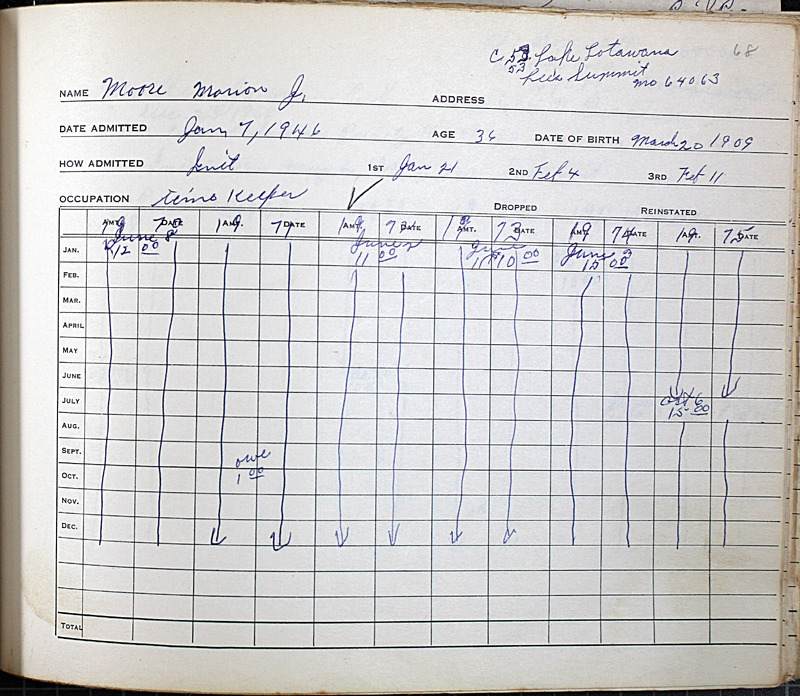 68
C 53 Lake Lotawana
53
Lees Summit
Mo 64063
NAME Moore Marion J. ADDRESS
DATE ADMITTED Jan 7, 1946 AGE 36 DATE OF BIRTH March 20 1909
HOW ADMITTED Init 1ST Jan 21 2ND Feb 4 3RD Feb 11
OCCUPATION Time Keeper
DROPPED REINSTATED
AMT. DATE AMT. DATE AMT. DATE AMT. DATE AMT. DATE AMT. DATE
19 70 19 71 19 72 19 73 19 74 19 75
JAN. June 8 June 2 June June 3
12 00 11 00 10 00 15 00
FEB.
MAR.
APRIL
MAY
JUNE
JULY Oct 6
15 00
AUG.
SEPT. owe
OCT. 1 00
NOV.
DEC.
TOTAL